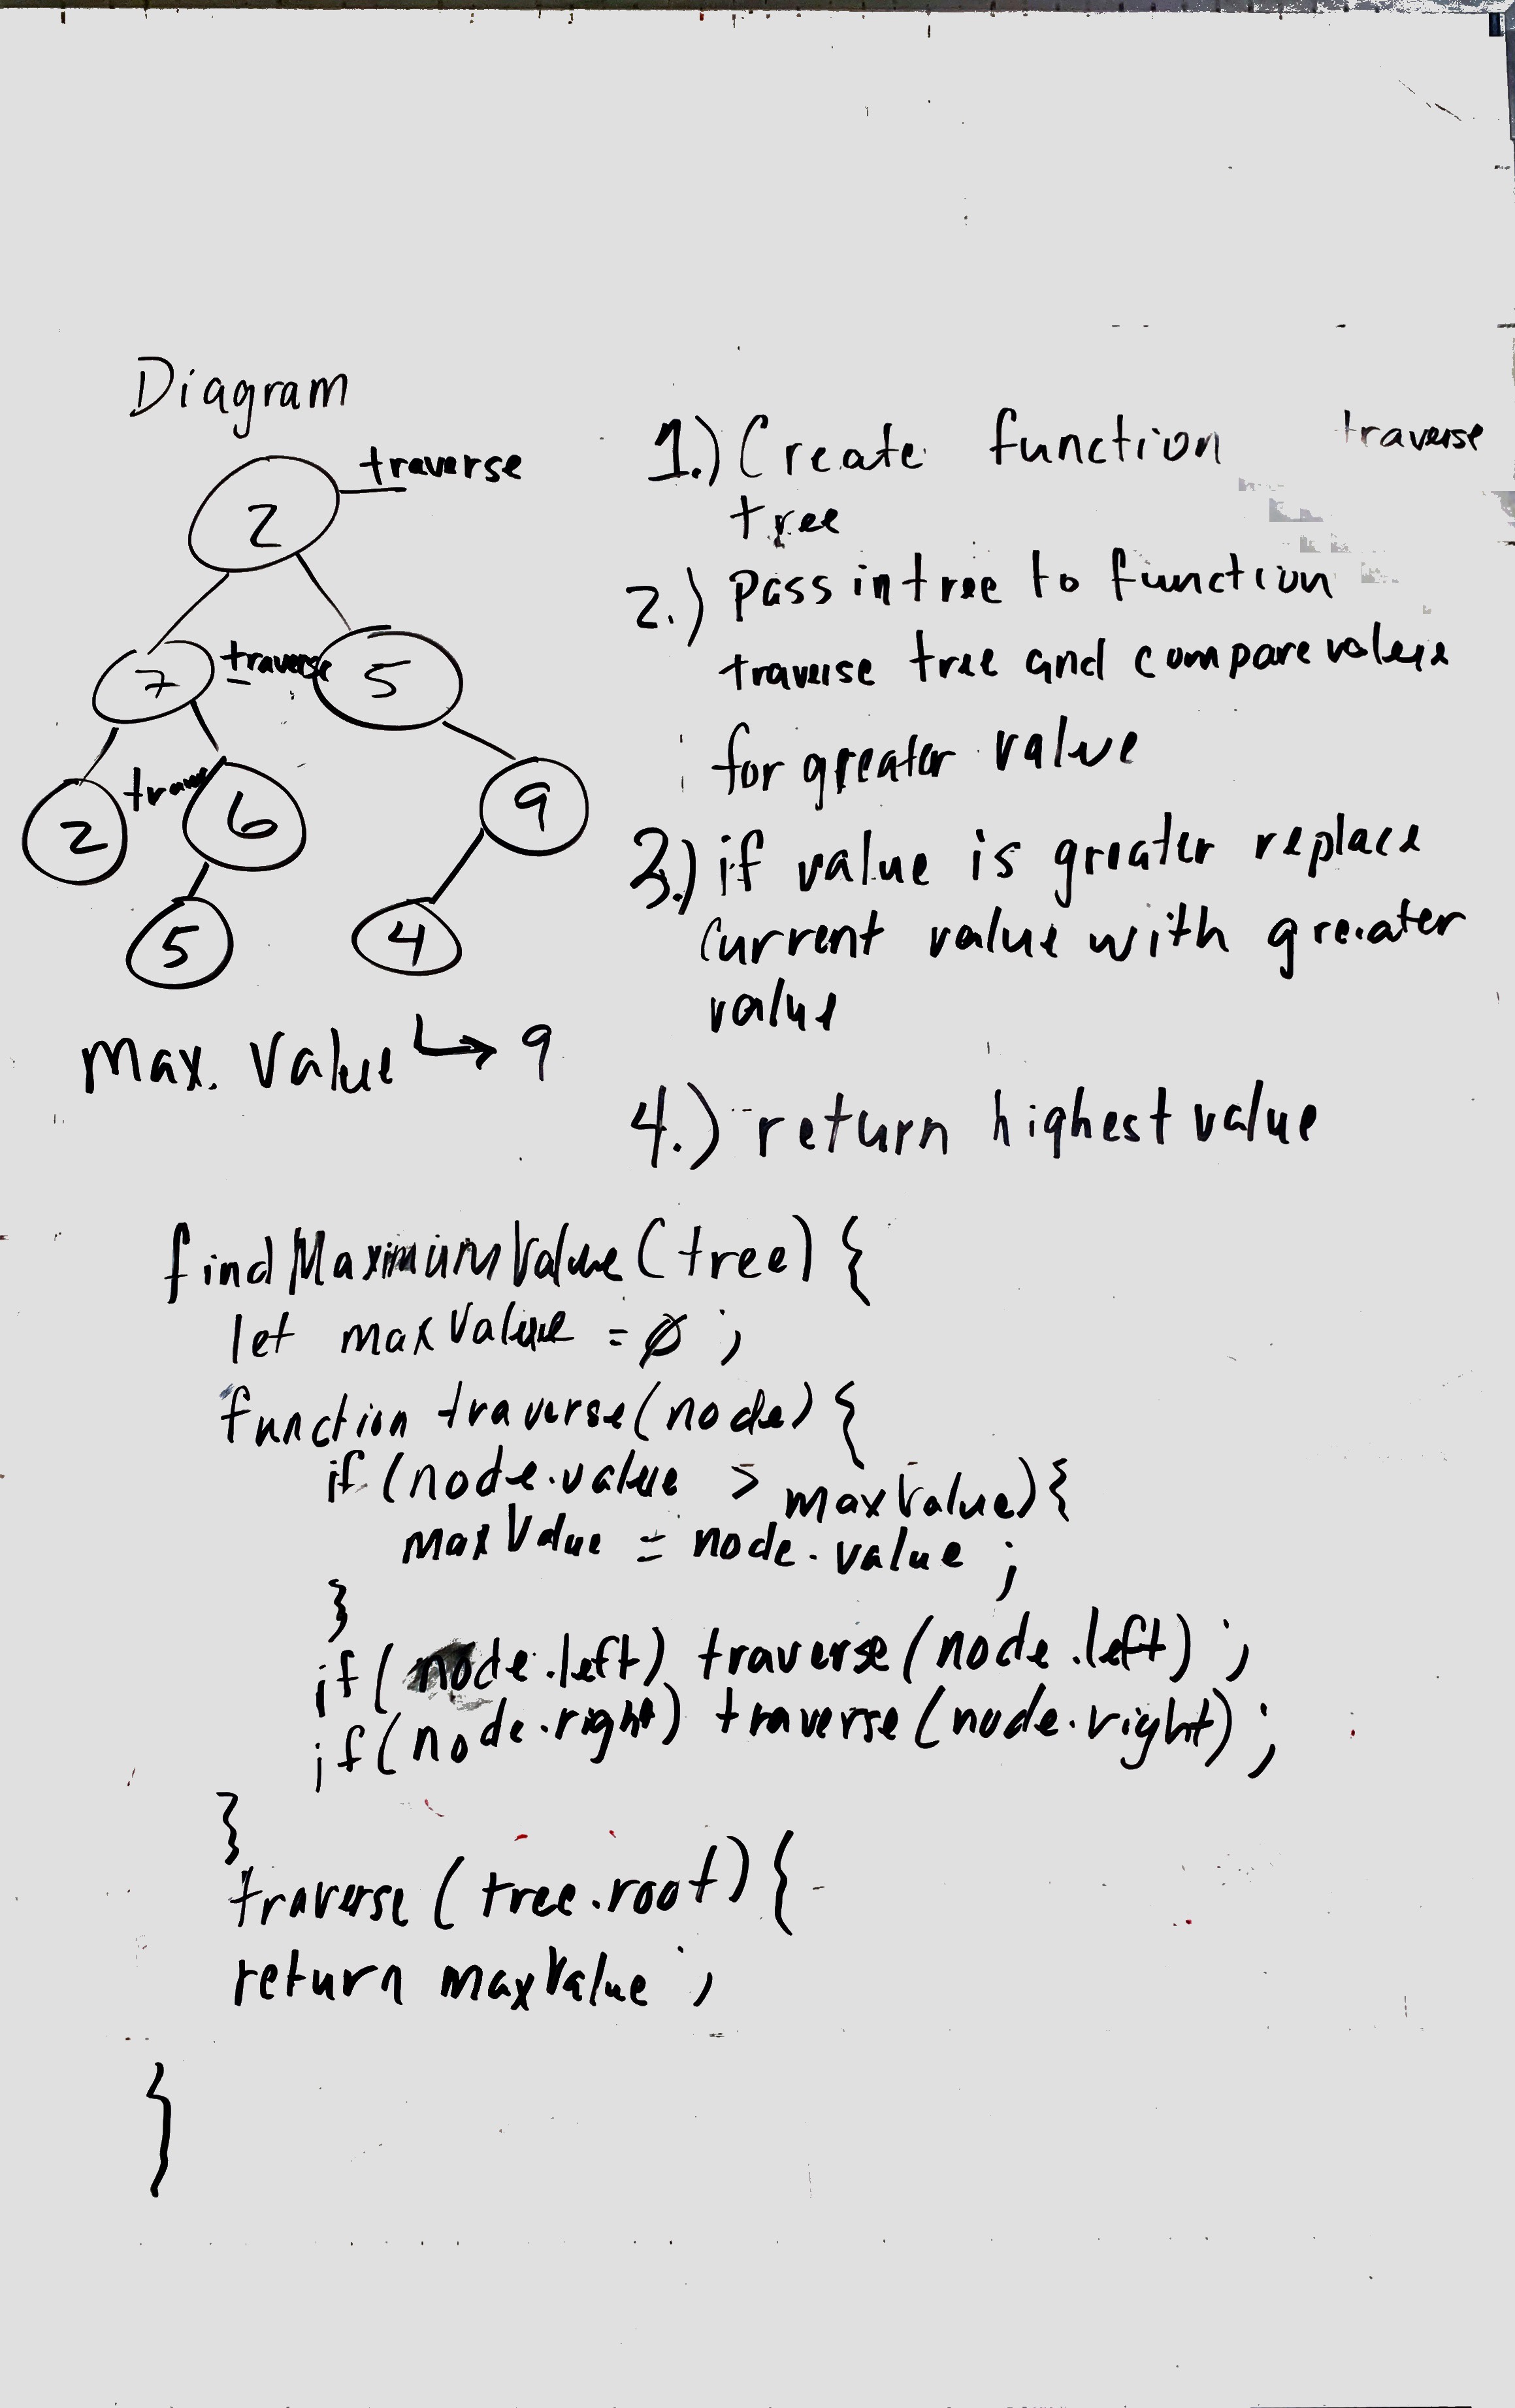 Diagram
traverse
2
7
traverse
5
2
6
9
5
4
Max. Value ↳ 9
1.) Create function traverse
tree
2.) Pass in tree to function
traverse tree and compare values
for greater value
3.) if value is greater replace
current value with greater
value
4.) return highest value
findMaximumValue(tree) {
let maxValue = 0;
function traverse(node) {
if (node.value > maxValue) {
maxValue = node.value;
}
if(node.left) traverse(node.left);
if(node.right) traverse(node.right);
}
traverse(tree.root) {
return maxValue;
}